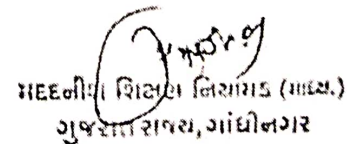 મદદનીશ શિક્ષણ નિયામક (માધ્ય.)
ગુજરાત રાજ્ય, ગાંધીનગર